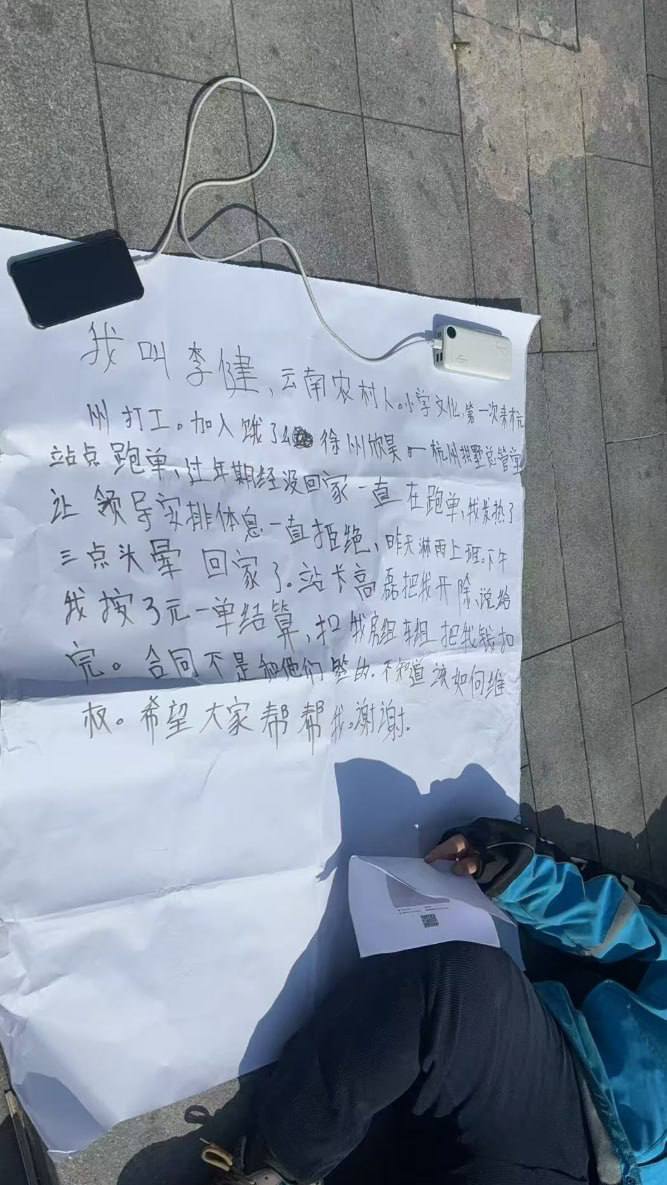 我叫李健，云南农村人。小学文化，第一次来杭
州打工。加入饿了么徐州欣昊。—杭州拱墅总管堂
站点跑单，过年期经没回家一直在跑单，我发热了
让领导安排体息一直拒绝，昨天淋雨上班。下午
三点头晕回家了。站长高磊把我开除，说给
我按了元一单结算，扣我房租车租把我钱扣
完。合同不是和他们签的。不知道该如何维
权。希望大家帮帮我。谢谢.